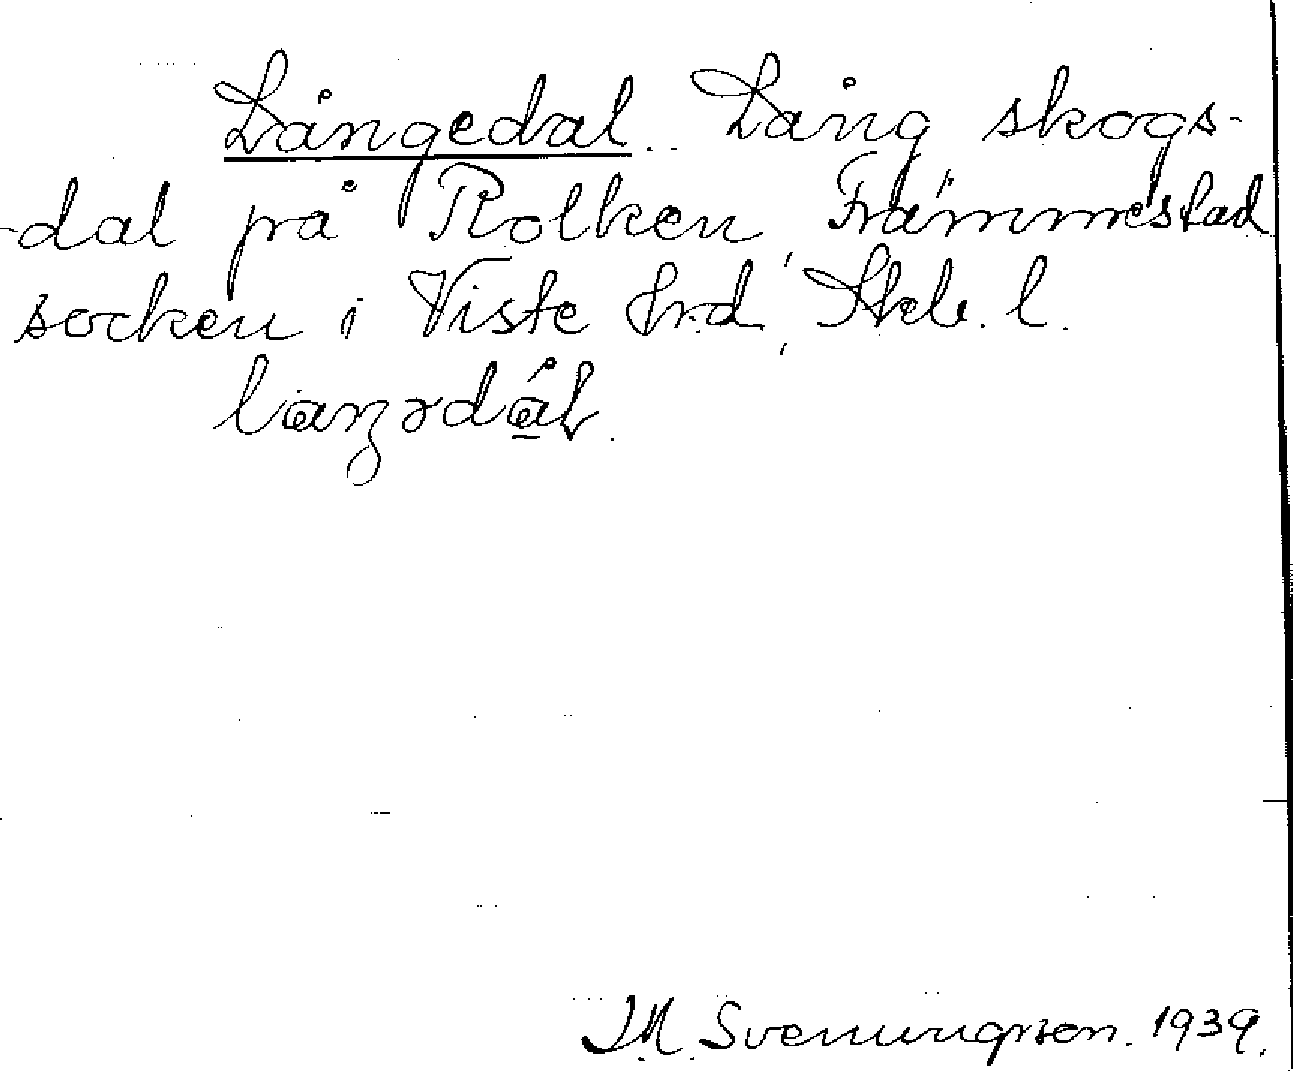 Långedal. Lång skogs-
-dal på Rolken, Främmestad
socken i Viste hrd, Skb. l.
laŋɜdál.
J.M. Svenungsson. 1939.